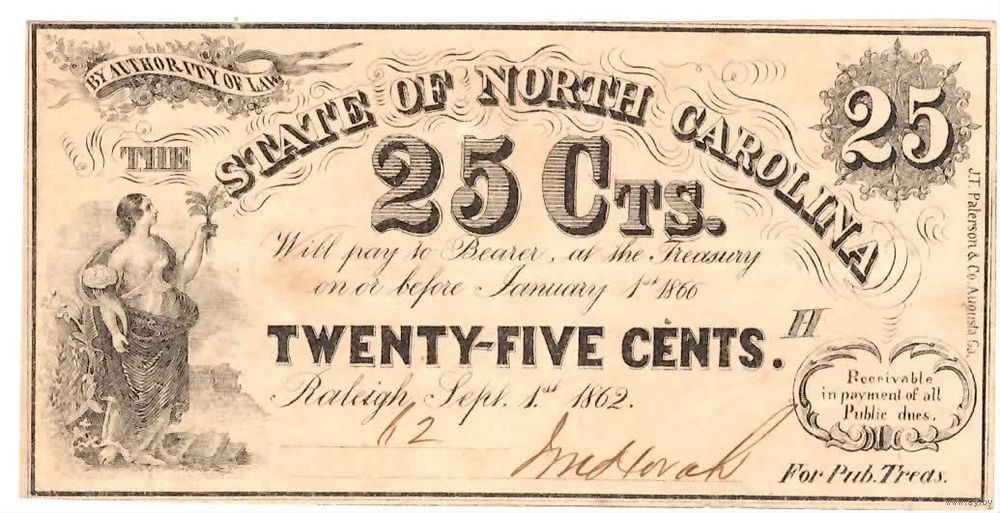 BY AUTHORITY OF LAW
THE
STATE OF NORTH CAROLINA
25
25 CTS.
Will pay to Bearer, at the Treasury
on or before January 1st 1866
TWENTY-FIVE CENTS.
H
Raleigh, Sept. 1st 1862.
62
Receivable
in payment of all
Public dues.
For Pub. Treas.
J.T. Paterson & Co. Augusta Ga.
www.ay.by